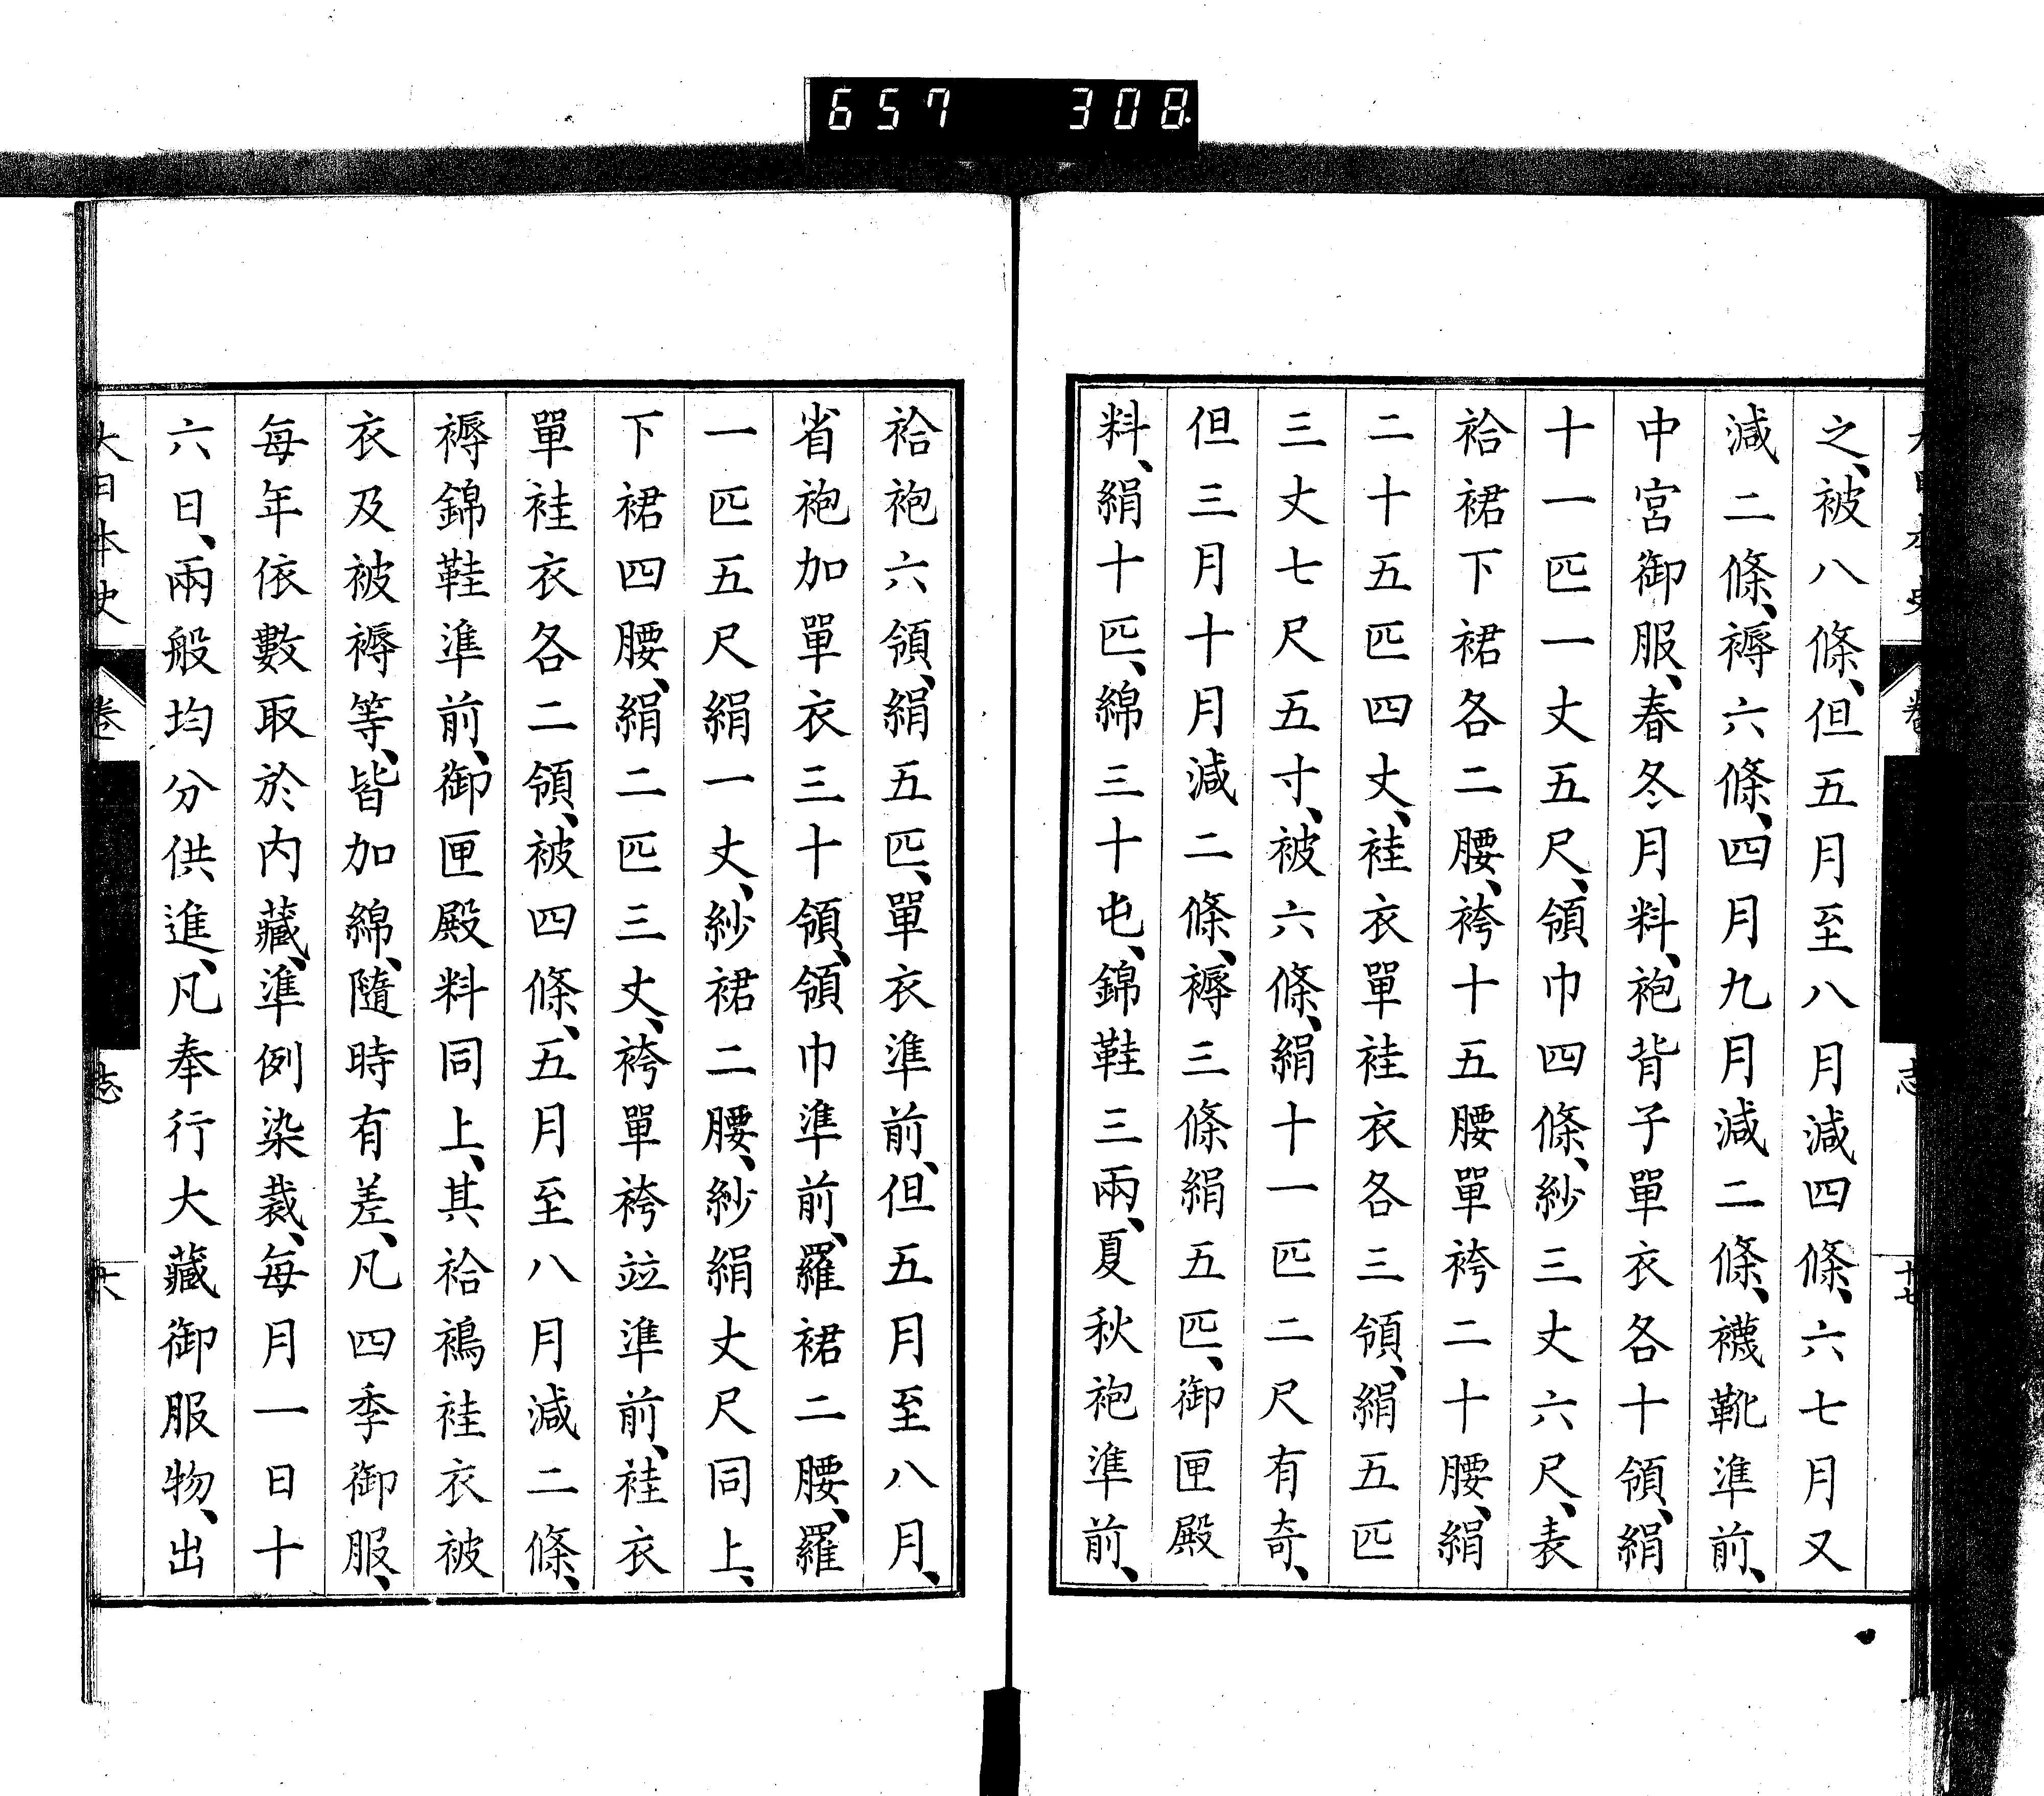 657 308
之、被八條、但五月至八月減四條、六七月又
減二條、褥六條、四月九月減二條、襪靴準前、
中宮御服、春冬月料、袍背子單衣各十領、絹
十一匹一丈五尺、領巾四條、紗三丈六尺、表
袷裙下裙各二腰、袴十五腰單袴二十腰、絹
二十五匹四丈、袿衣單袿衣各三領、絹五匹
三丈七尺五寸、被六條、絹十一匹二尺有奇、
但三月十月減二條、褥三條絹五匹、御匣殿
料、絹十匹、綿三十屯、錦鞋三兩、夏秋袍準前、
袷袍六領、絹五匹、單衣準前、但五月至八月、
省袍加單衣三十領、領巾準前、羅裙二腰、羅
一匹五尺絹一丈、紗裙二腰、紗絹丈尺同上、
下裙四腰、絹二匹三丈、袴單袴竝準前、袿衣
單袿衣各二領、被四條、五月至八月減二條、
褥錦鞋準前、御匣殿料同上、其袷襖袿衣被
衣及被褥等、皆加綿、隨時有差、凡四季御服、
每年依數取於内藏、準例染裁、每月一日十
六日、兩般均分供進、凡奉行大藏御服物、出
大日本史 卷 志